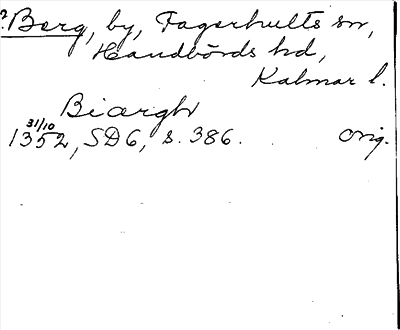 ?Berg, by, Fagerhults sn,
Handbörds hd,
Kalmar l.
Biærgh
31/10
1352, SD6, s. 386. orig.